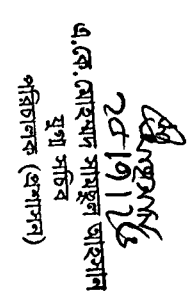 এ.কে.মোহাম্মদ সামছুল আহসান
যুগ্ম সচিব
পরিচালক (প্রশাসন)